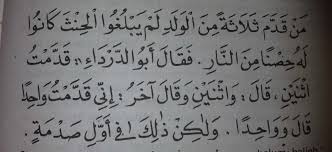 مَنْ قَدَّمَ ثَلَاثَةً مِنَ الْوَلَدِ لَمْ يَبْلُغُوا الْحِنْثَ كَانُوا
لَهُ حِصْنًا مِنَ النَّارِ . فَقَالَ أَبُو الدَّرْدَاءِ : قَدَّمْتُ
اثْنَيْنِ ، قَالَ : وَاثْنَيْنِ وَقَالَ آخَرُ : إِنِّي قَدَّمْتُ وَاحِدًا
قَالَ وَوَاحِدًا . وَلٰكِنْ ذٰلِكَ فِي أَوَّلِ صَدْمَةٍ .